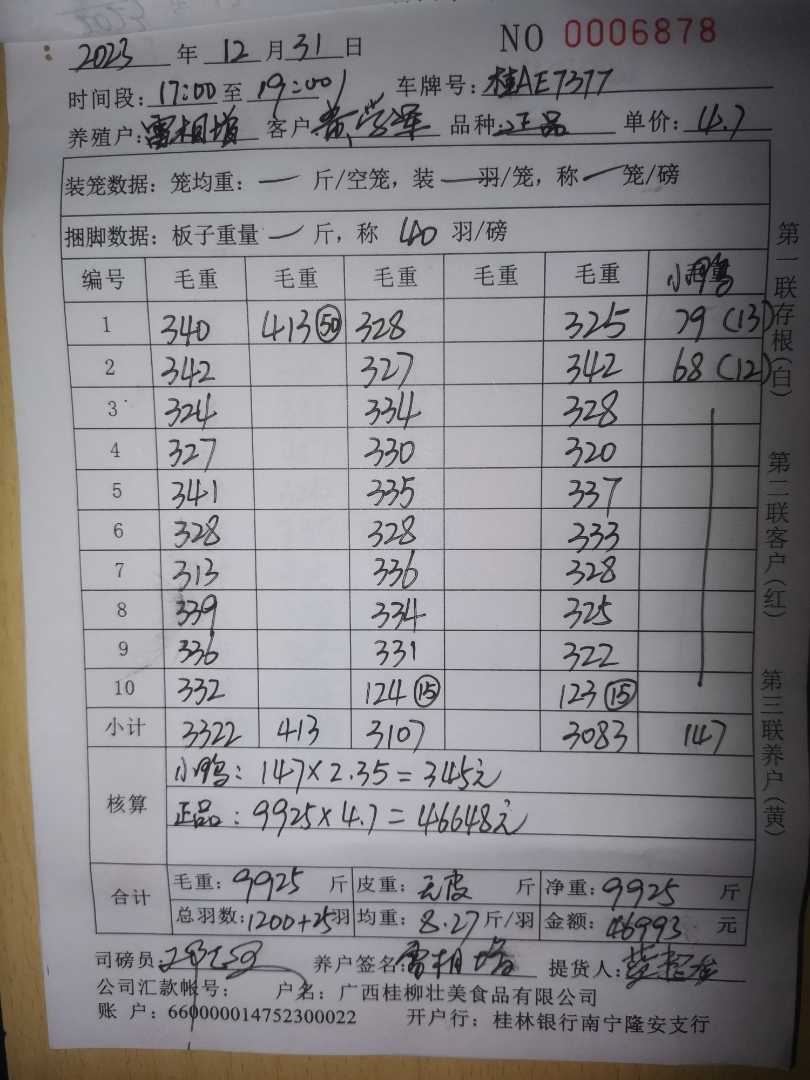 NO 0006878
2023 年 12 月 31 日
时间段: 17:00 至 19:00 车牌号: 桂AE7377
养殖户: 雷相增 客户 黄 品种: 正品 单价: 4.7
装笼数据: 笼均重: — 斤/空笼, 装 — 羽/笼, 称 — 笼/磅
捆脚数据: 板子重量 — 斤, 称 40 羽/磅
编号 毛重 毛重 毛重 毛重 毛重 小鸭
1 340 413 (50) 328 325 79 (13)
2 342 327 342 68 (12)
3 324 334 328
4 327 330 320
5 341 335 337
6 328 328 333
7 313 336 328
8 339 334 325
9 336 331 322
10 332 124 (15) 123 (15)
小计 3322 413 3107 3083 147
核算
小鸭: 147×2.35=345元
正品: 9925×4.7=46648元
合计
毛重: 9925 斤 皮重: 无皮 斤 净重: 9925 斤
总羽数: 1200+25 羽 均重: 8.27 斤/羽 金额: 46993 元
司磅员: 养户签名: 雷相增 提货人:
公司汇款帐号: 户名: 广西桂柳壮美食品有限公司
账 户: 660000014752300022 开户行: 桂林银行南宁隆安支行
第一联存根(白) 第二联客户(红) 第三联养户(黄)